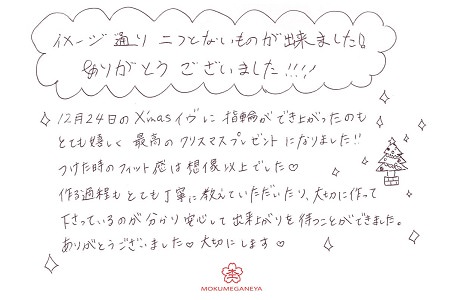 イメージ通り 二つとないものが出来ました!
ありがとう ございました!!!!
12月24日のXmasイヴに 指輪ができ上がったのも
とても嬉しく 最高の クリスマスプレゼント になりました!!
つけた時のフィット感は想像以上でした♡
作る過程も とても丁寧に教えていただいたり、大切に作って
下さっているのが分かり 安心して 出来上がりを 待つことができました。
ありがとうございました♡ 大切にします♡
MOKUMEGANEYA